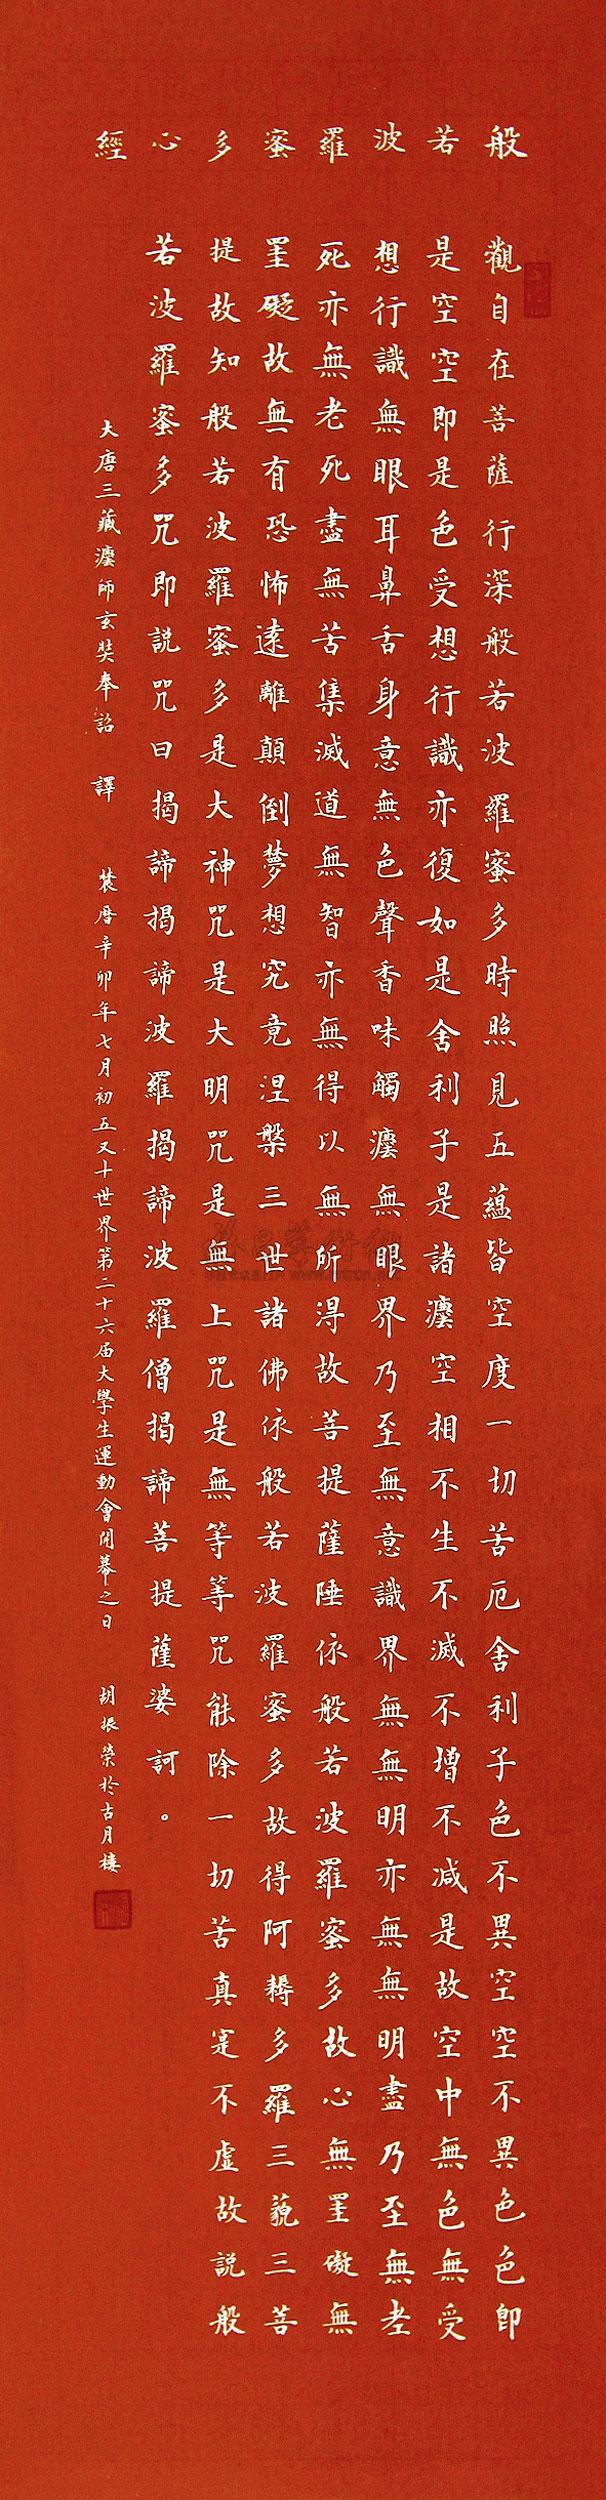 般若波羅蜜多心經
觀自在菩薩行深般若波羅蜜多時照見五蘊皆空度一切苦厄舍利子色不異空空不異色色即
是空空即是色受想行識亦復如是舍利子是諸灋空相不生不滅不增不減是故空中無色無受
想行識無眼耳鼻舌身意無色聲香味觸灋無眼界乃至無意識界無無明亦無無明盡乃至無老
死亦無老死盡無苦集滅道無智亦無得以無所得故菩提薩埵依般若波羅蜜多故心無罣礙無
罣礙故無有恐怖遠離顛倒夢想究竟涅槃三世諸佛依般若波羅蜜多故得阿耨多羅三藐三菩
提故知般若波羅蜜多是大神咒是大明咒是無上咒是無等等咒能除一切苦真寔不虛故説般
若波羅蜜多咒即説咒曰揭諦揭諦波羅揭諦波羅僧揭諦菩提薩婆訶。
大唐三藏灋師玄奘奉詔譯
農曆辛卯年七月初五又十世界第二十六届大學生運動會開幕之日
胡振榮於古月樓